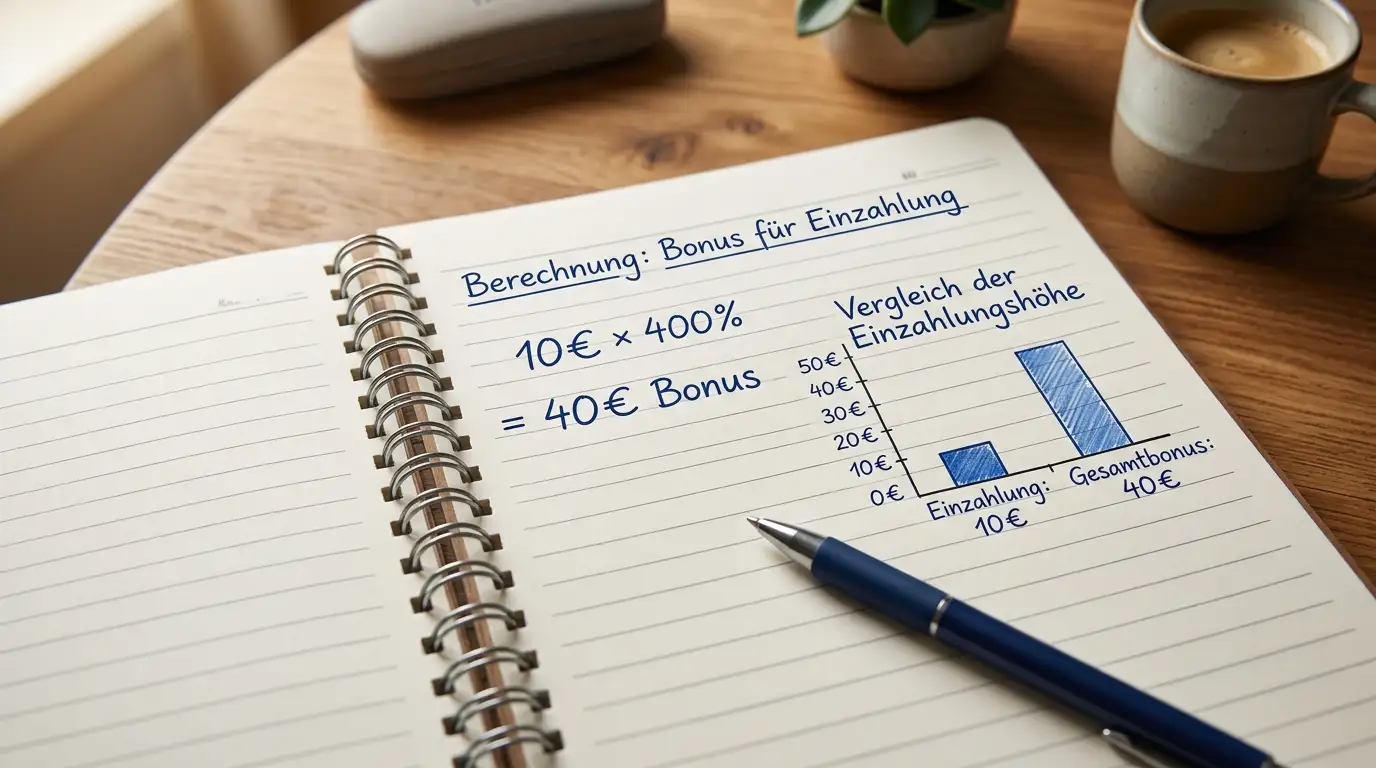 Berechnung: Bonus für Einzahlung
10€ × 400%
= 40€ Bonus
Vergleich der
Einzahlungshöhe
50€
40€
30€
20€
10€
0€
Einzahlung:
10€
Gesamtbonus:
40€